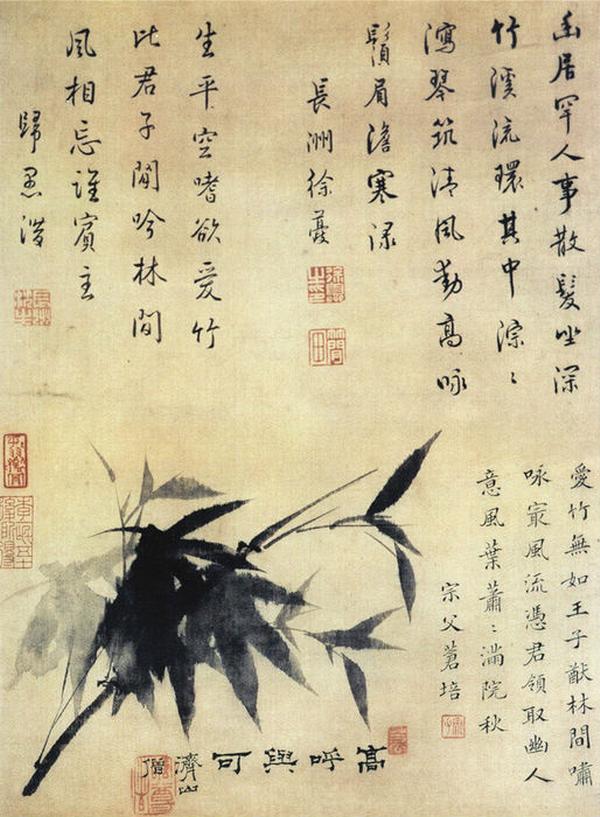 幽居罕人事散髮坐深
竹溪流環其中淙〻
瀉琴筑清風動高咏
鬚眉澹寒淥
長洲徐夔
生平空嗜欲愛竹
此君子閒吟林間
風相忘誰賓主
歸愚潛
愛竹無如王子猷林間嘯
咏㝡風流憑君領取幽人
意風葉蕭〻滿院秋
宗父蒼培
高呼與可
濟山僧